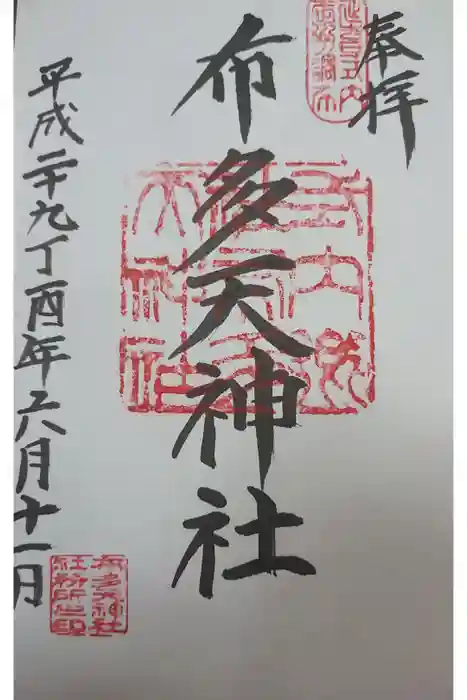 奉拝
布多天神社
平成二十九丁酉年六月十一日
布多天神社
社務所之印